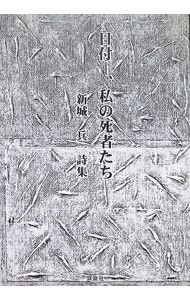 日付、私の死者たち
新城兵 詩集